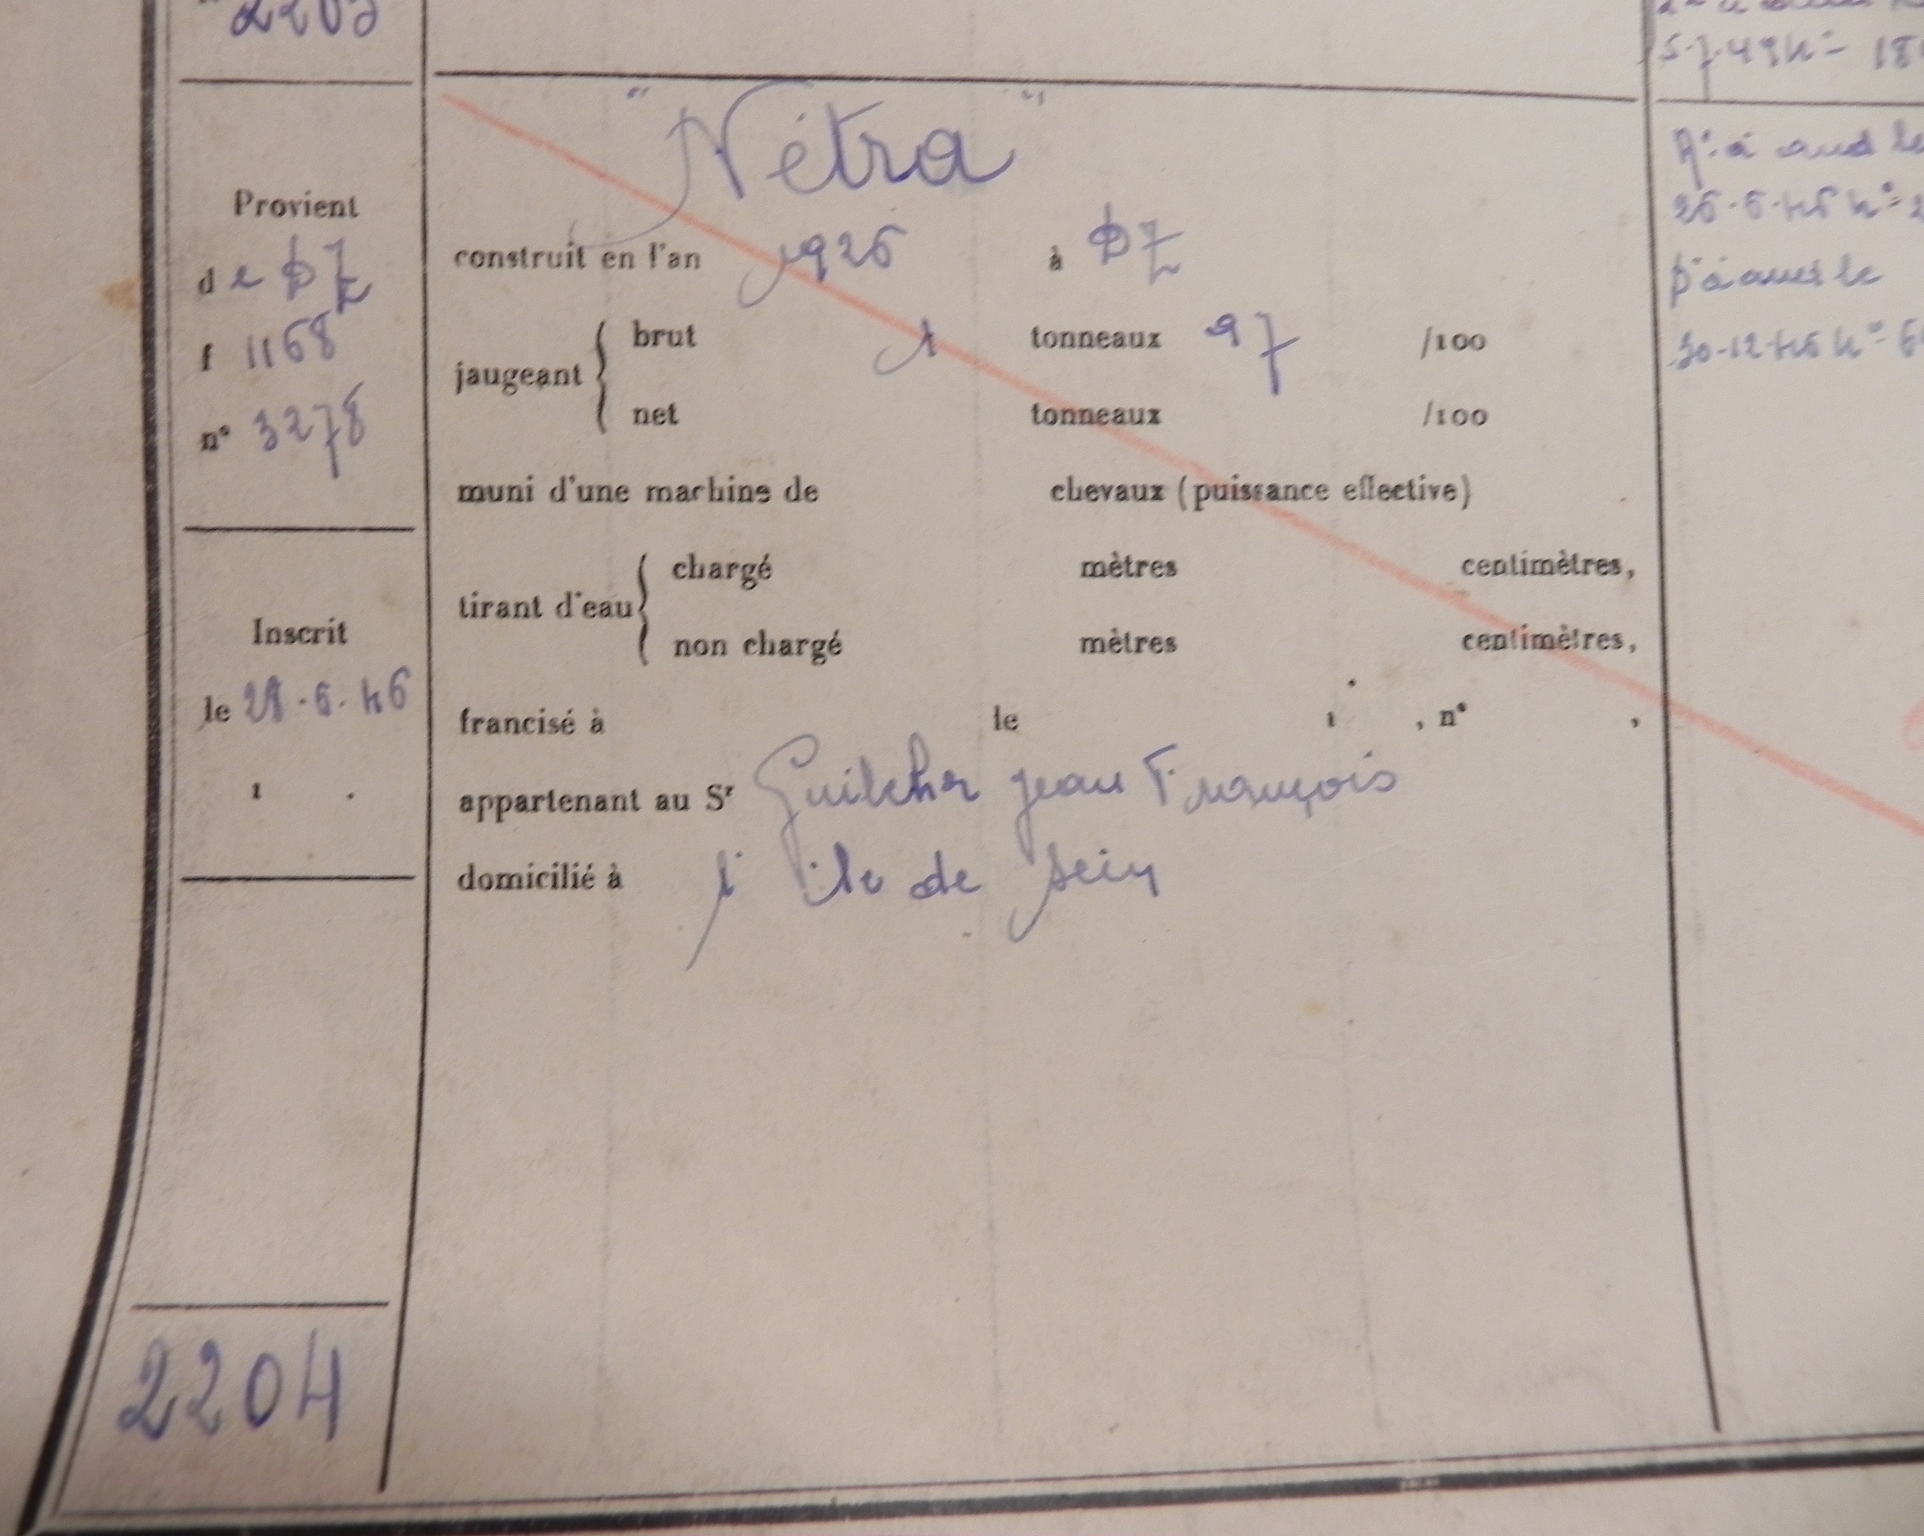 2203
Provient
de DZ
f 1168
n° 3278
Inscrit
le 28.6.46
1 .
2204
"Nétra"
construit en l'an 1926 à DZ
jaugeant brut 1 tonneaux 97 /100
net tonneaux /100
muni d'une machine de chevaux (puissance effective)
tirant d'eau chargé mètres centimètres,
non chargé mètres centimètres,
francisé à le 1 , n° ,
appartenant au Sr Guilcher Jean François
domicilié à l'ile de Sein
5.7.49 n° 18
A° à aud le
26.6.46 n° 2
D° à aud le
30.12.46 n° 6